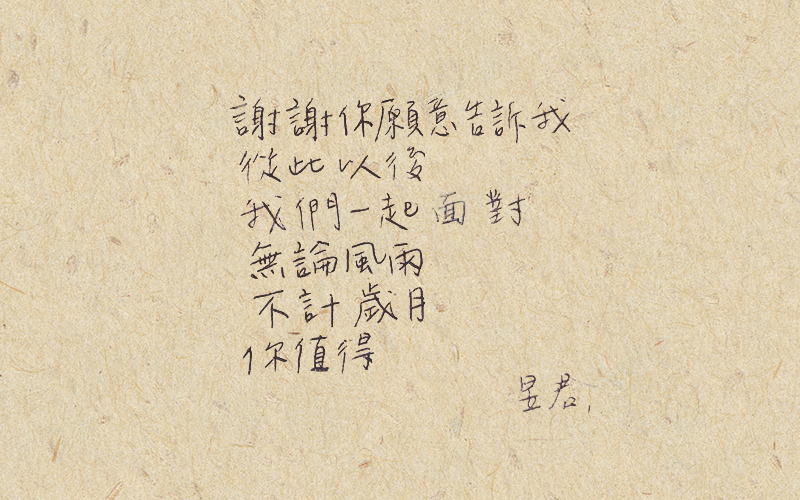 謝謝你願意告訴我
從此以後
我們一起面對
無論風雨
不計歲月
你值得
昱君,